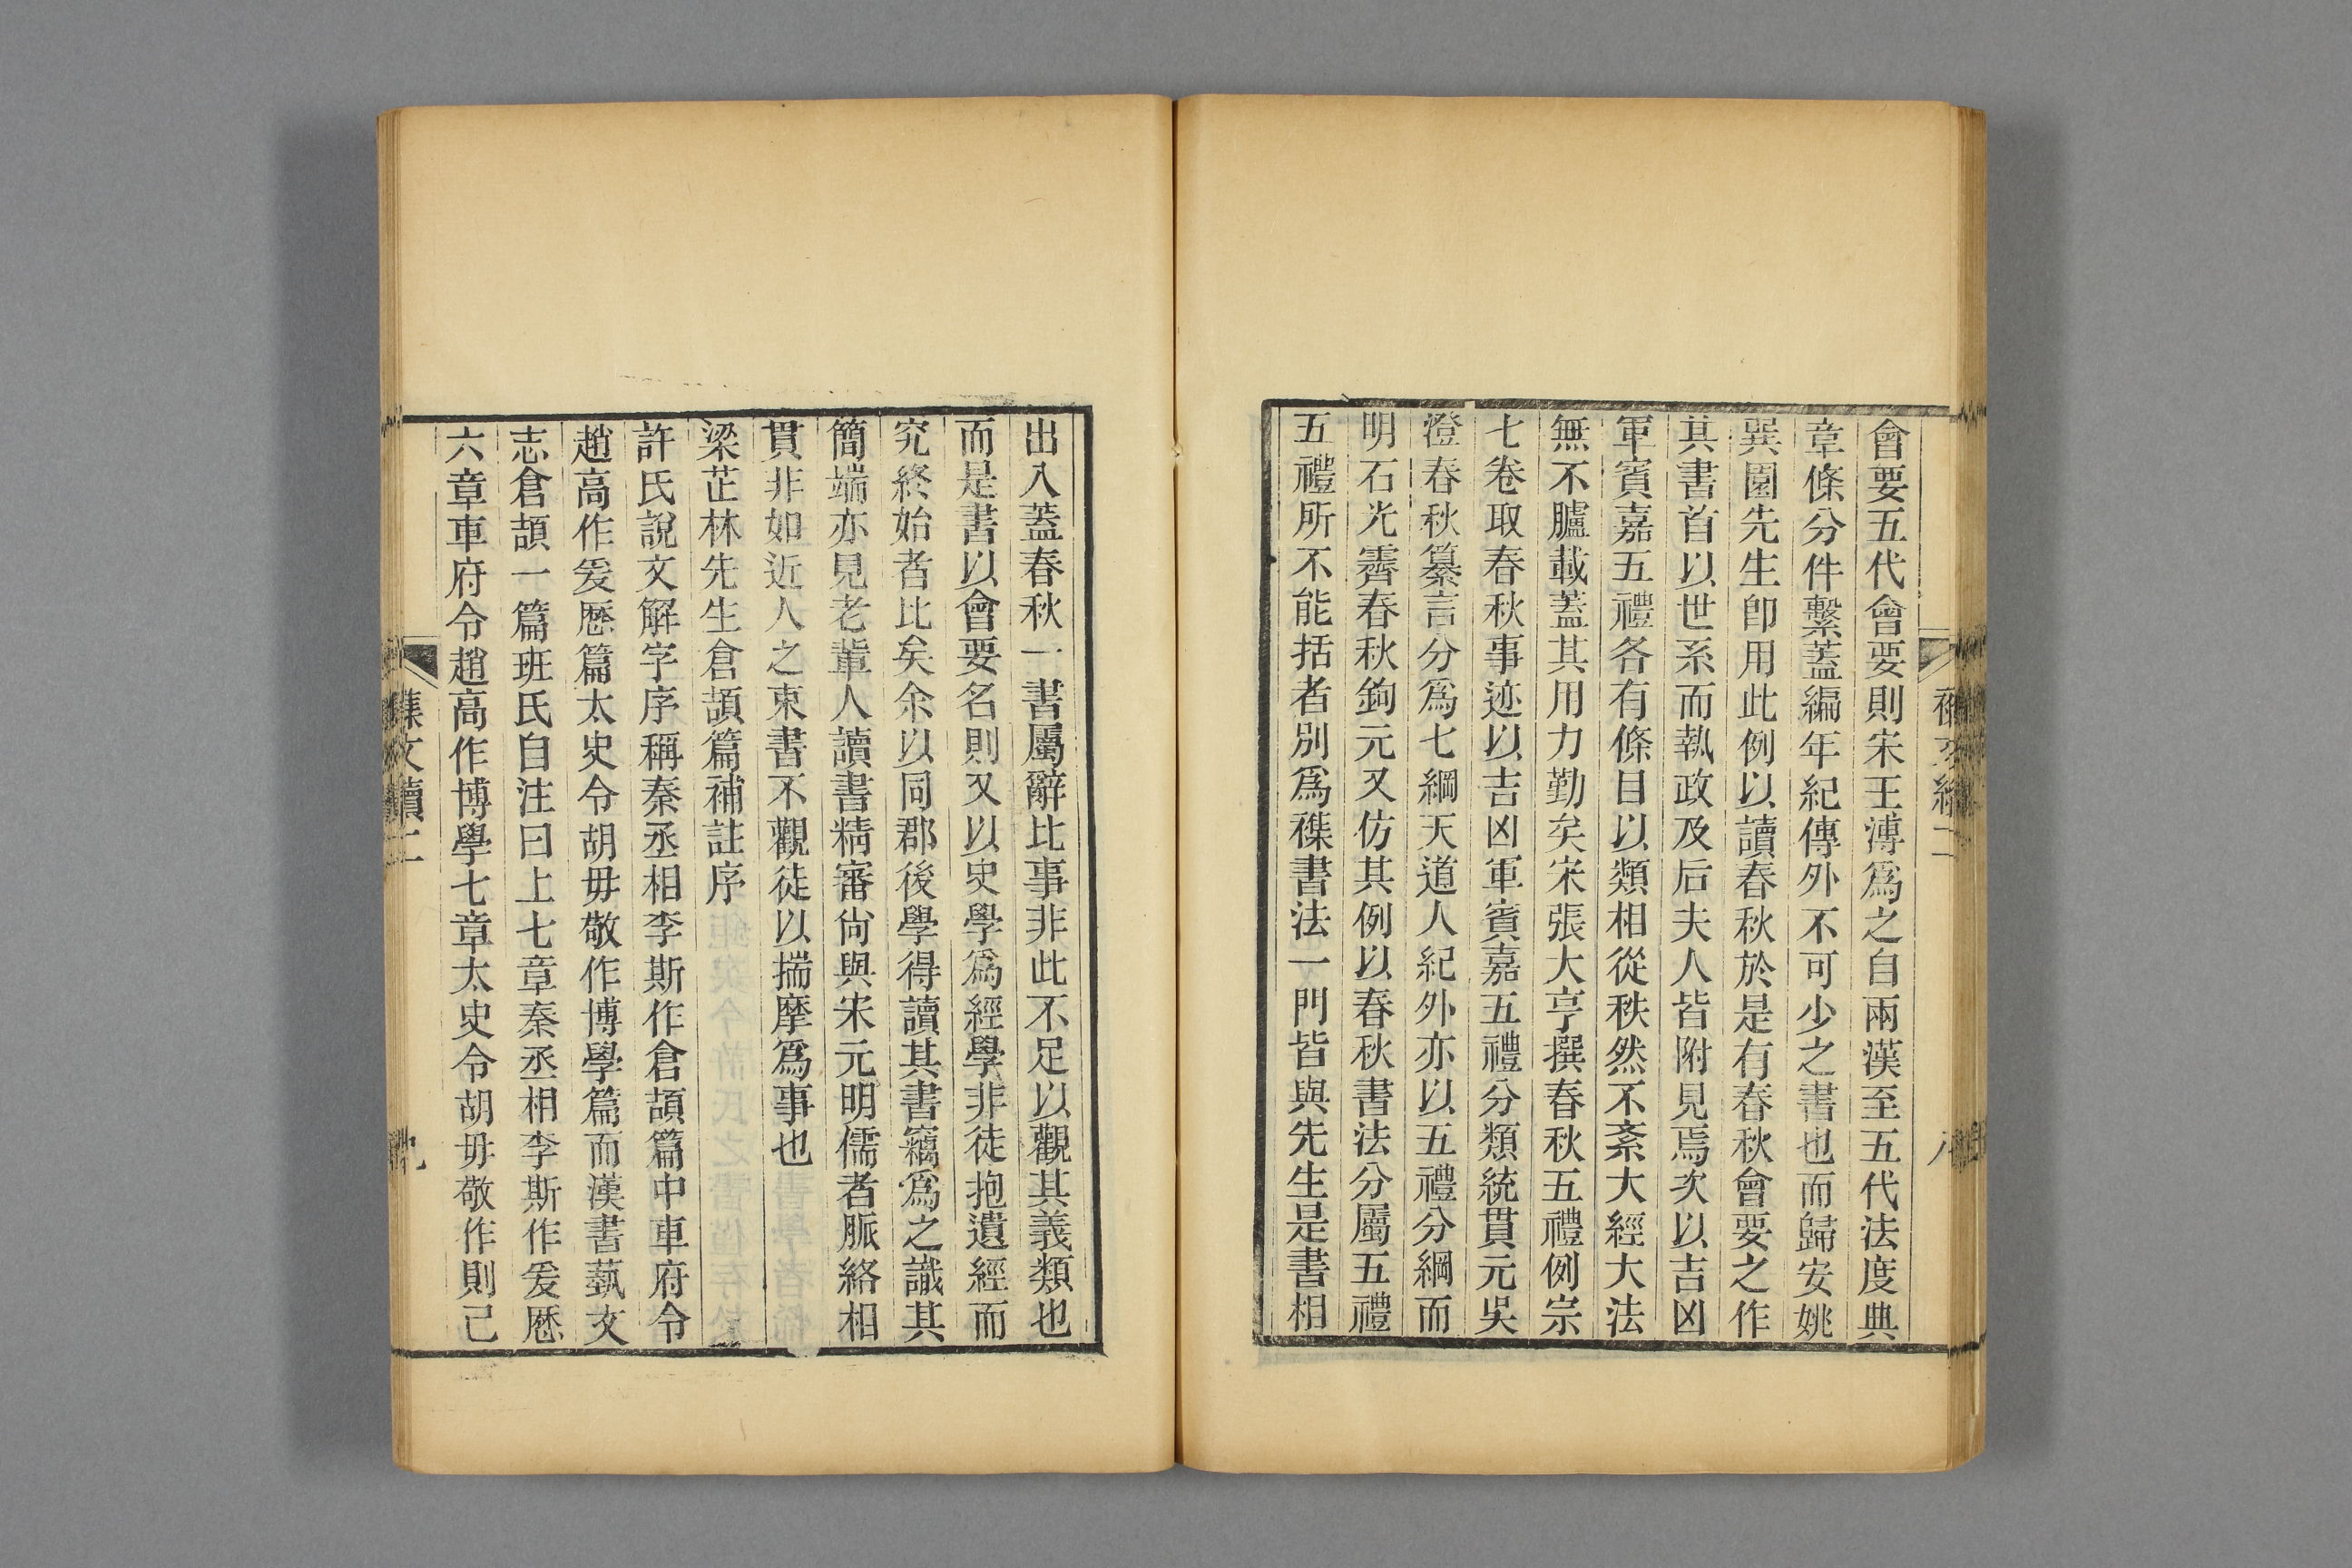 會要五代會要則宋王溥爲之自兩漢至五代法度典
章條分件繫蓋編年紀傳外不可少之書也而歸安姚
巽園先生卽用此例以讀春秋於是有春秋會要之作
其書首以世系而執政及后夫人皆附見焉次以吉凶
軍賓嘉五禮各有條目以類相從秩然不紊大經大法
無不臚載蓋其用力勤矣宋張大亨撰春秋五禮例宗
七卷取春秋事迹以吉凶軍賓嘉五禮分類統貫元吳
澄春秋纂言分爲七綱天道人紀外亦以五禮分綱而
明石光霽春秋鉤元又仿其例以春秋書法分屬五禮
五禮所不能括者別爲襍書法一門皆與先生是書相
出入蓋春秋一書屬辭比事非此不足以觀其義類也
而是書以會要名則又以史學爲經學非徒抱遺經而
究終始者比矣余以同郡後學得讀其書竊爲之識其
簡端亦見老輩人讀書精審尙與宋元明儒者脈絡相
貫非如近人之束書不觀徒以揣摩爲事也
梁芷林先生倉頡篇補註序
許氏說文解字序稱秦丞相李斯作倉頡篇中車府令
趙高作爰厯篇太史令胡毋敬作博學篇而漢書蓺文
志倉頡一篇班氏自注曰上七章秦丞相李斯作爰厯
六章車府令趙高作博學七章太史令胡毋敬作則已
襍文續二
九